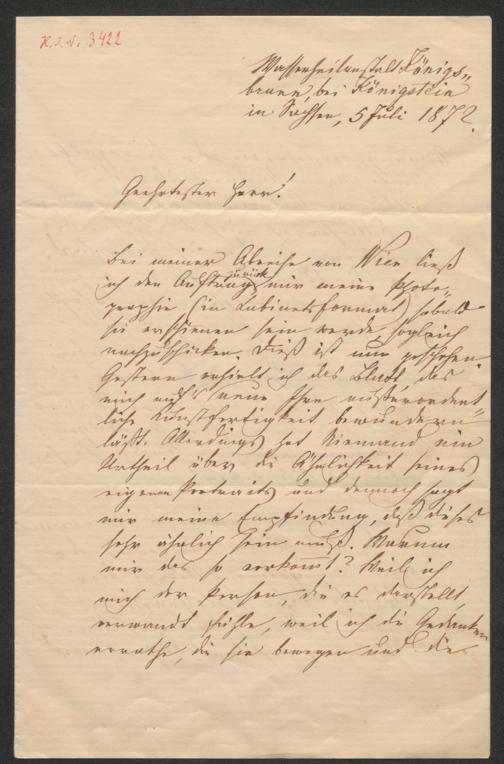 H.I.N. 3422
Wasserheilanstalt Königs„
brunn, bei Königstein
in Sachsen, 5 Juli 1872.
Geehrtester Herr!
Bei meiner Abreise von Wien ließ
ich den Auftrag zurück mir meine Photo„
graphie (in Cabinetsformat) sobald
sie erschienen sein werde sogleich
nachzuschicken. Dieß ist nun geschehen.
Gestern erhielt ich das Blatt, das
mich auf's neue Ihre außerordent
liche Kunstfertigkeit bewundern
läßt. Allerdings hat Niemand ein
Urtheil über die Ähnlichkeit seines
eigenen Portraits und dennoch sagt
mir meine Empfindung, daß dieses
sehr ähnlich sein muß. Warum
mir das so vorkommt? Weil ich
mich der Person, die es darstellt,
verwandt fühle, weil ich die Gedanken
errathe, die sie bewegen und die